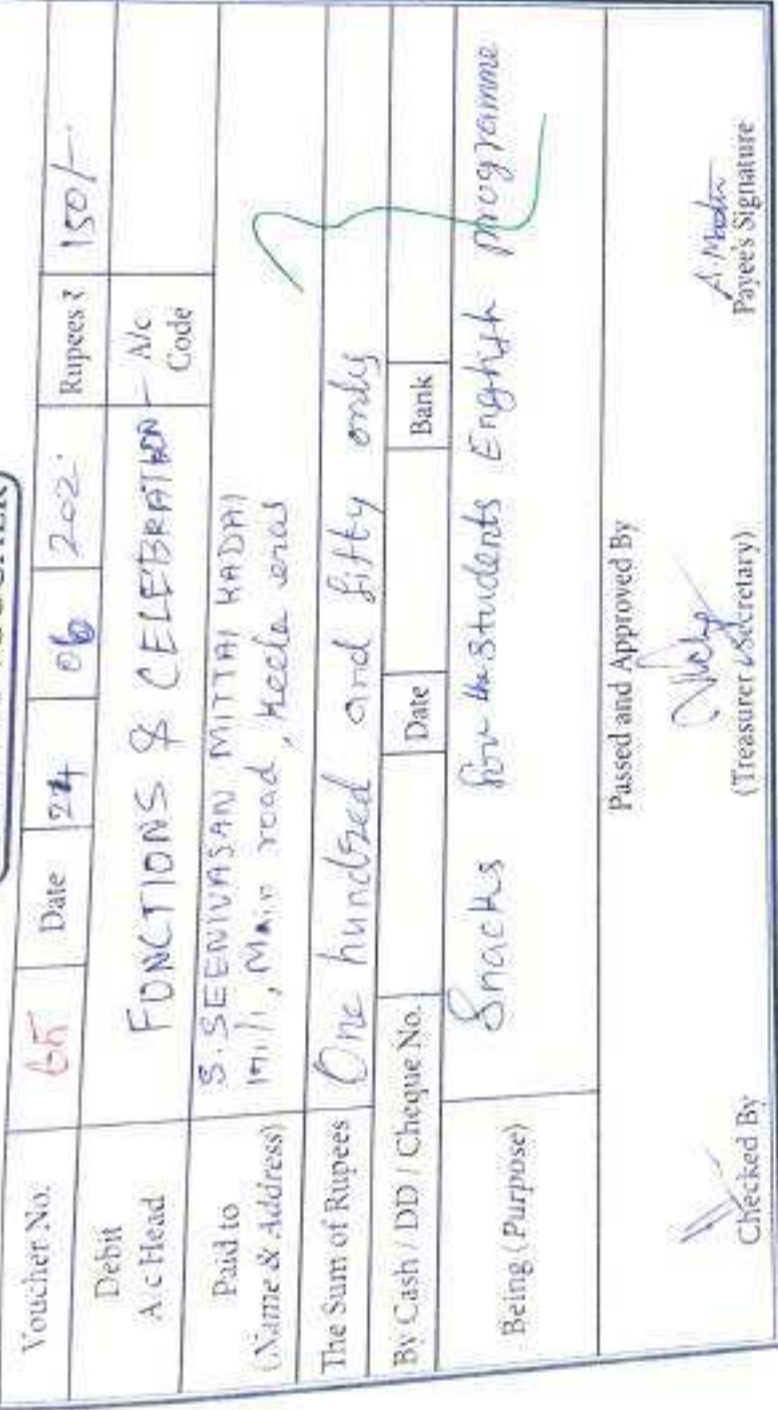 Voucher No. 65 Date 24 06 202 Rupees ₹ 150/-
Debit
A/c Head
FUNCTIONS & CELEBRATION
A/c
Code
Paid to
(Name & Address)
S. SEENIVASAN MITTAI KADAI
Main road, Keela
The Sum of Rupees One hundred and fifty only
By Cash / DD / Cheque No. Date Bank
Being (Purpose) Snacks for the students English programme
Passed and Approved By
Checked By
(Treasurer / Secretary)
Payee's Signature